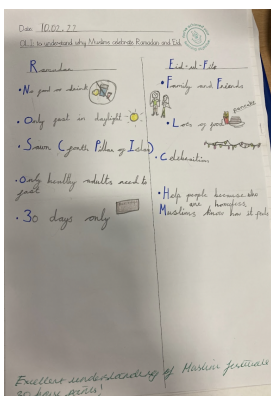 Date: 10.02.22
Q1. to understand why Muslims celebrate Ramadan and Eid.
Ramadan
• No food or drink
• Only fast in daylight
• Sawm (fourth Pillar of Islam)
• Only healthy adults need to
fast
• 30 days only
Eid-ul-Fitr
• Family and Friends
• Lots of food
• Celebration
• Help people because who
are homeless
Muslims know how it feels
Excellent understanding of Muslim festivals